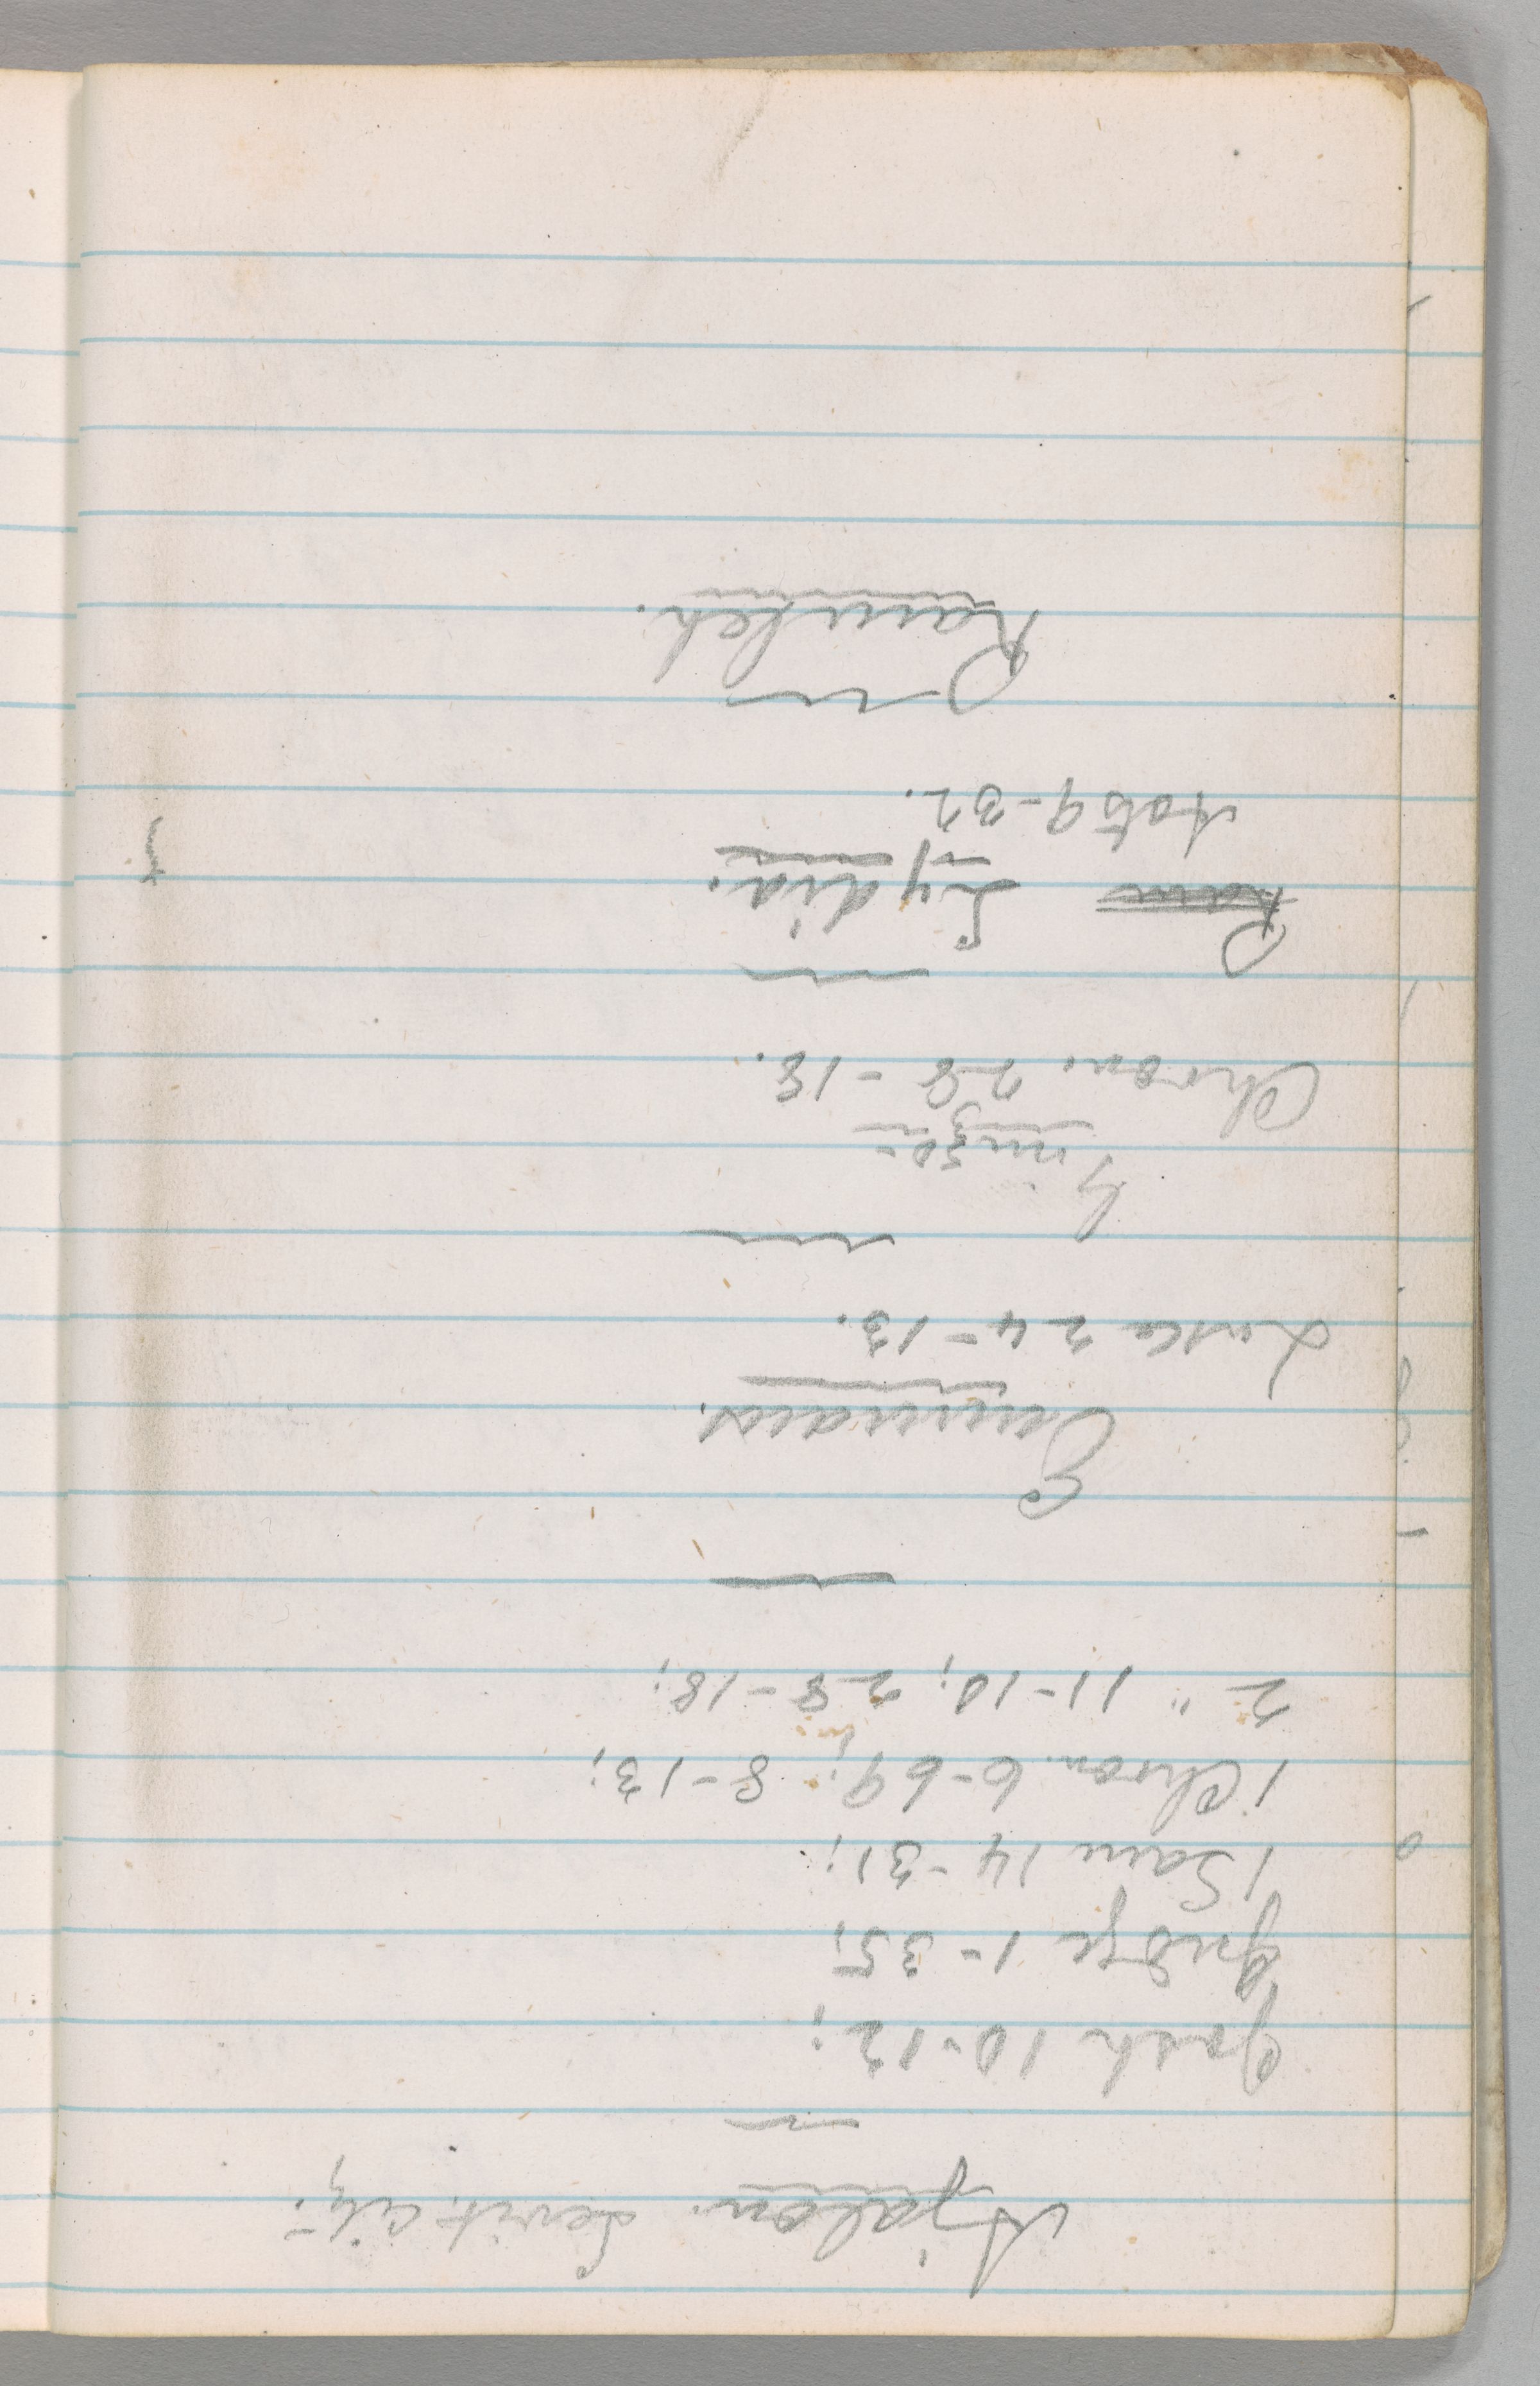 Ajalon. Levit. city.
Josh 10-12;
Judge 1-35;
1 Sam 14-31;
1 Chron. 6-69; 8-13;
2 " 11-10; 28-18;
Emmaus.
Luke 24-13.
Gimzo-
Chron. 28-18.
Ram Lydia.
Acts 9-32.
Ramleh.